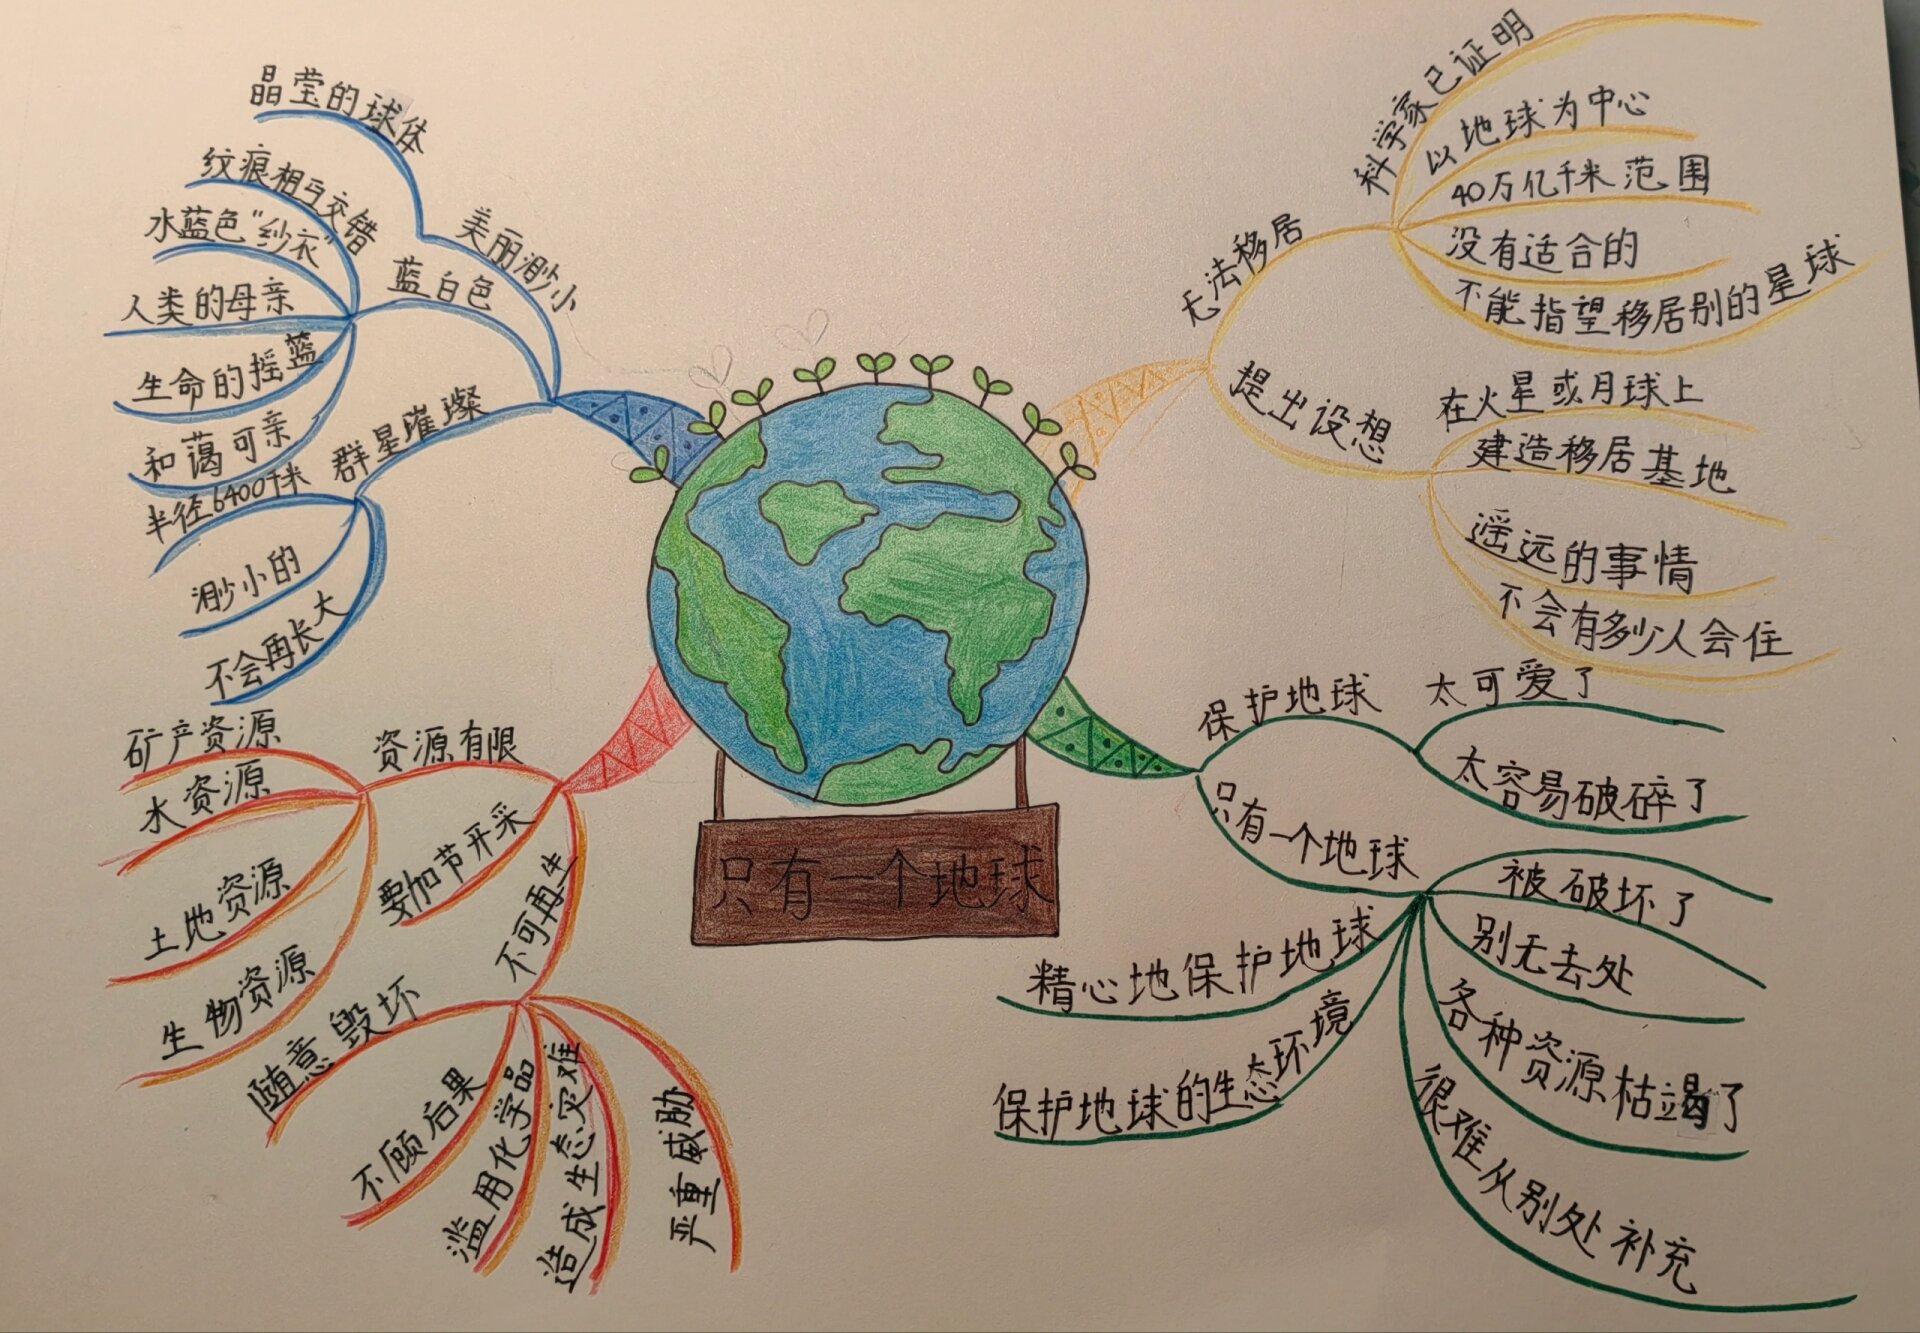 晶莹的球体
美丽渺小
纹痕相互交错
水蓝色“纱衣”
人类的母亲
生命的摇蓝
和蔼可亲
蓝白色
群星璀璨
半径6400千米
渺小的
不会再长大
科学家已证明
以地球为中心
40万亿千米范围
没有适合的
不能指望移居别的星球
无法移居
提出设想
在火星或月球上
建造移居基地
遥远的事情
不会有多少人会住
只有一个地球
矿产资源
水资源
土地资源
生物资源
资源有限
要加节开采
不可再生
随意毁坏
不顾后果
滥用化学品
造成生态灾难
严重威胁
保护地球
太可爱了
太容易破碎了
只有一个地球
被破坏了
别无去处
各种资源枯竭了
很难从别处补充
精心地保护地球
保护地球的生态环境